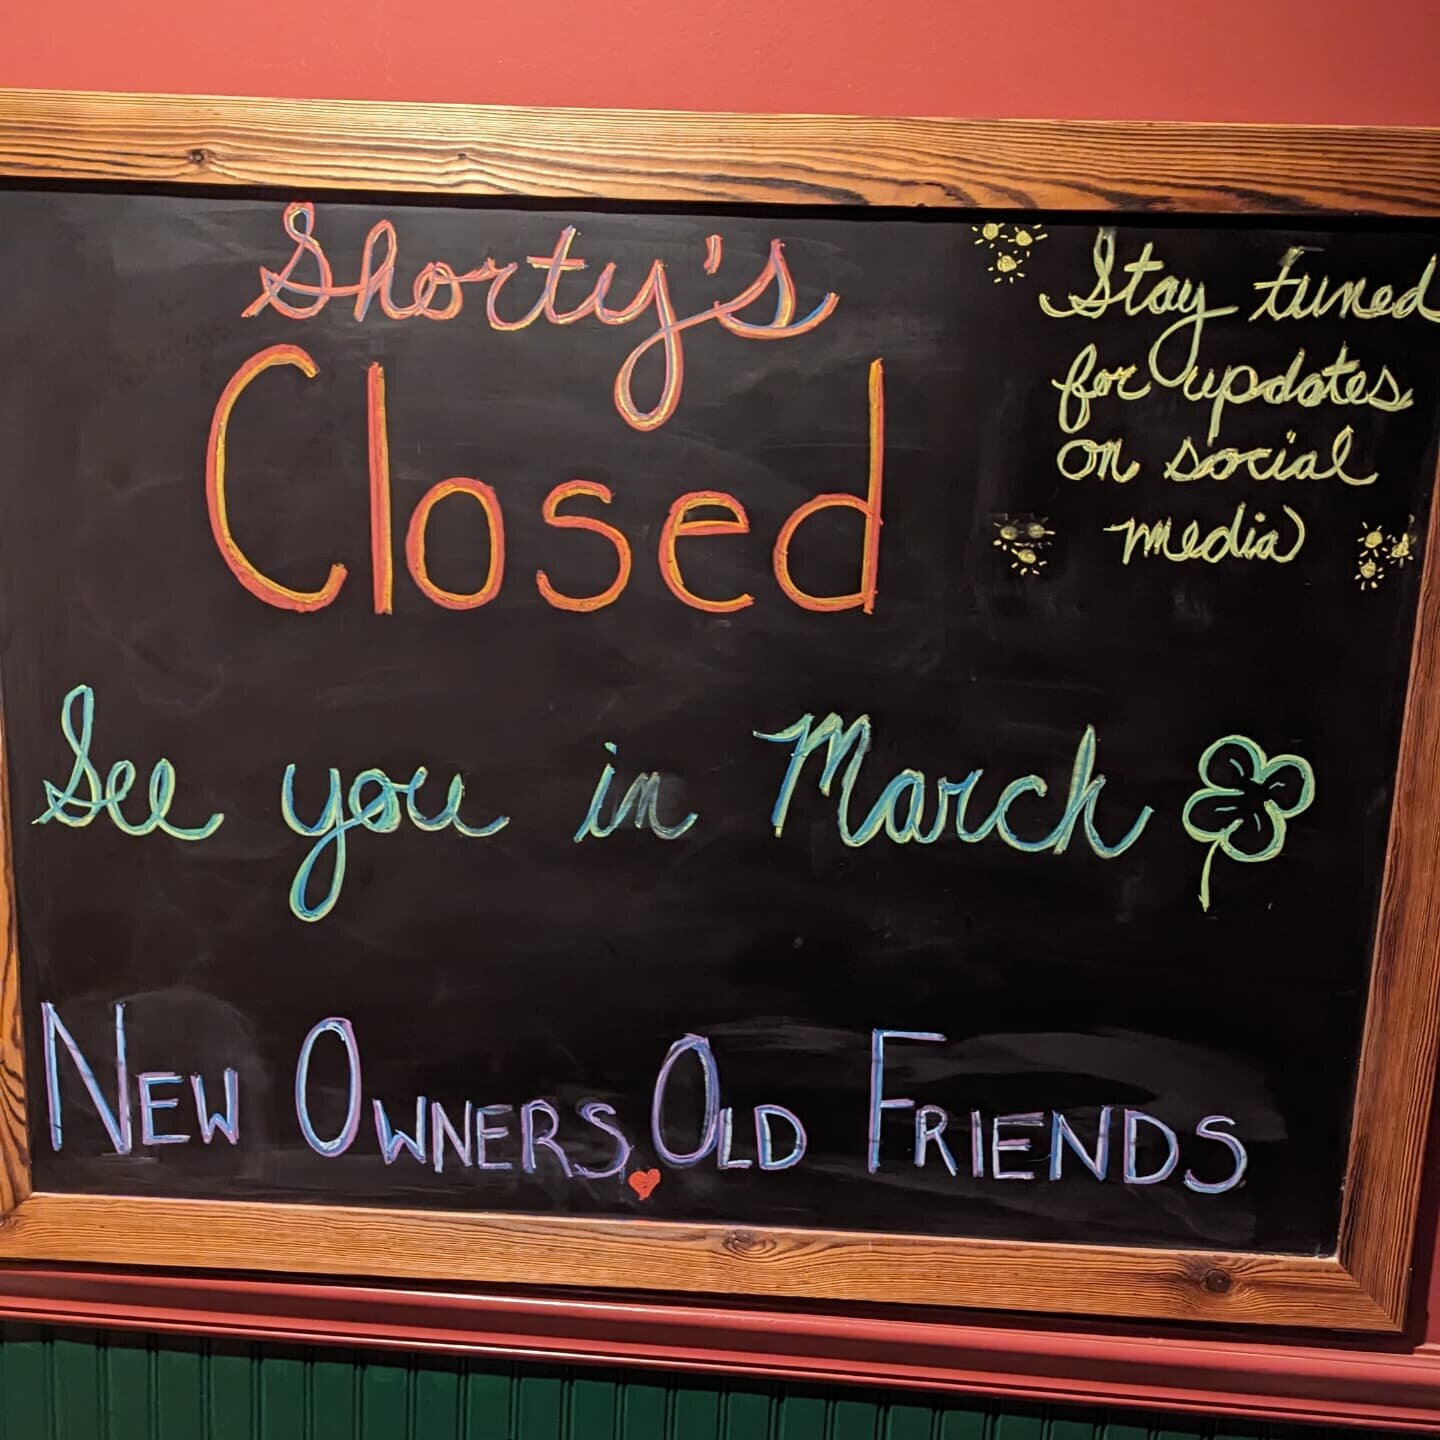 Shorty's
Closed
Stay tuned
for updates
on social
media
See you in March
New Owners, Old Friends